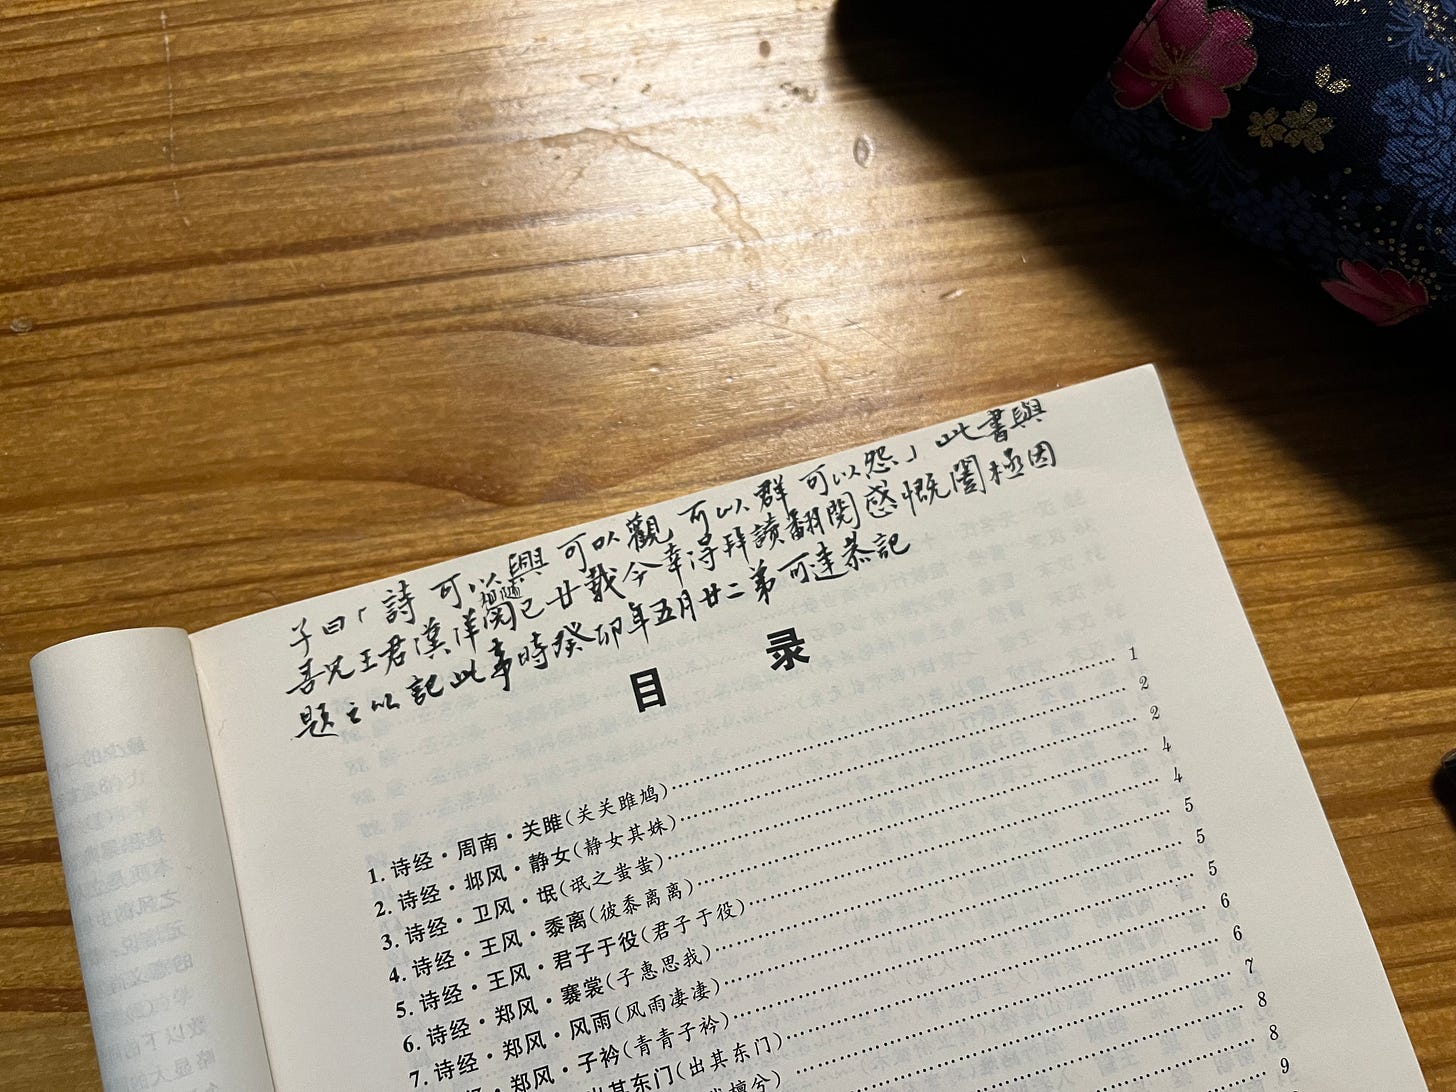 子曰「詩可以興 可以觀 可以群 可以怨」此書與
喜兄王君漢洋 相隨 閱已廿載今幸得拜讀翻閱感慨闔極因
題之以記此事時癸卯年五月廿二弟可達恭記
目 录
1. 诗经·周南·关雎(关关雎鸠) 1
2. 诗经·邶风·静女(静女其姝) 2
3. 诗经·卫风·氓(氓之蚩蚩) 2
4. 诗经·王风·黍离(彼黍离离) 4
5. 诗经·王风·君子于役(君子于役) 4
6. 诗经·郑风·褰裳(子惠思我) 5
7. 诗经·郑风·风雨(风雨凄凄) 5
郑风·子衿(青青子衿) 5
出其东门(出其东门) 6
檀兮) 6
7
8
8
9